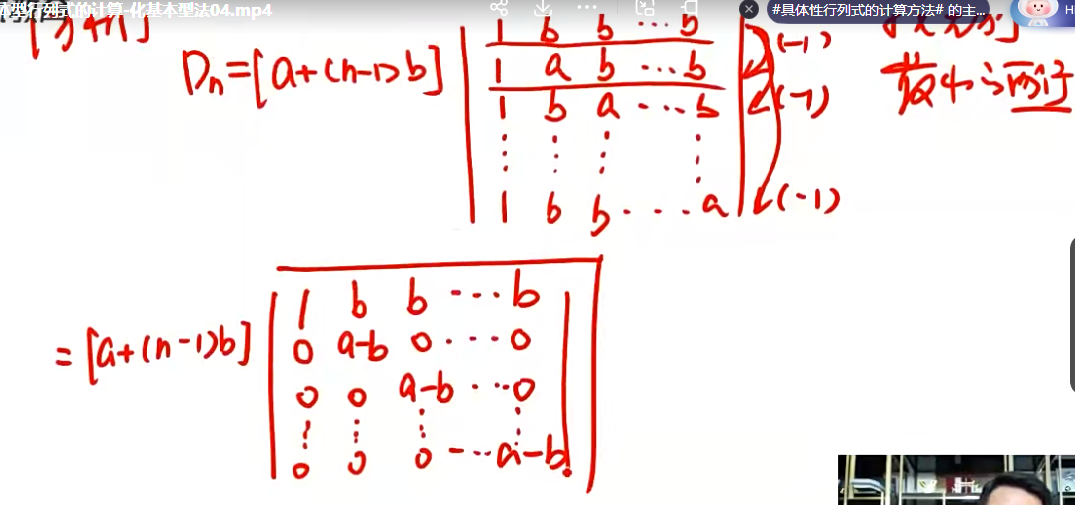 型行列式的计算-化基本型法04.mp4
#具体性行列式的计算方法# 的主...
[分析]
Dn=[a+(n-1)b] | 1 b b ... b | (-1)
| 1 a b ... b | (-1)
| 1 b a ... b |
| ⋮ ⋮ ⋮ ⋮ |
| 1 b b ... a | (-1)
两行
=[a+(n-1)b] | 1 b b ... b |
| 0 a-b 0 ... 0 |
| 0 0 a-b ... 0 |
| ⋮ ⋮ ⋮ ⋮ |
| 0 0 0 ... a-b |